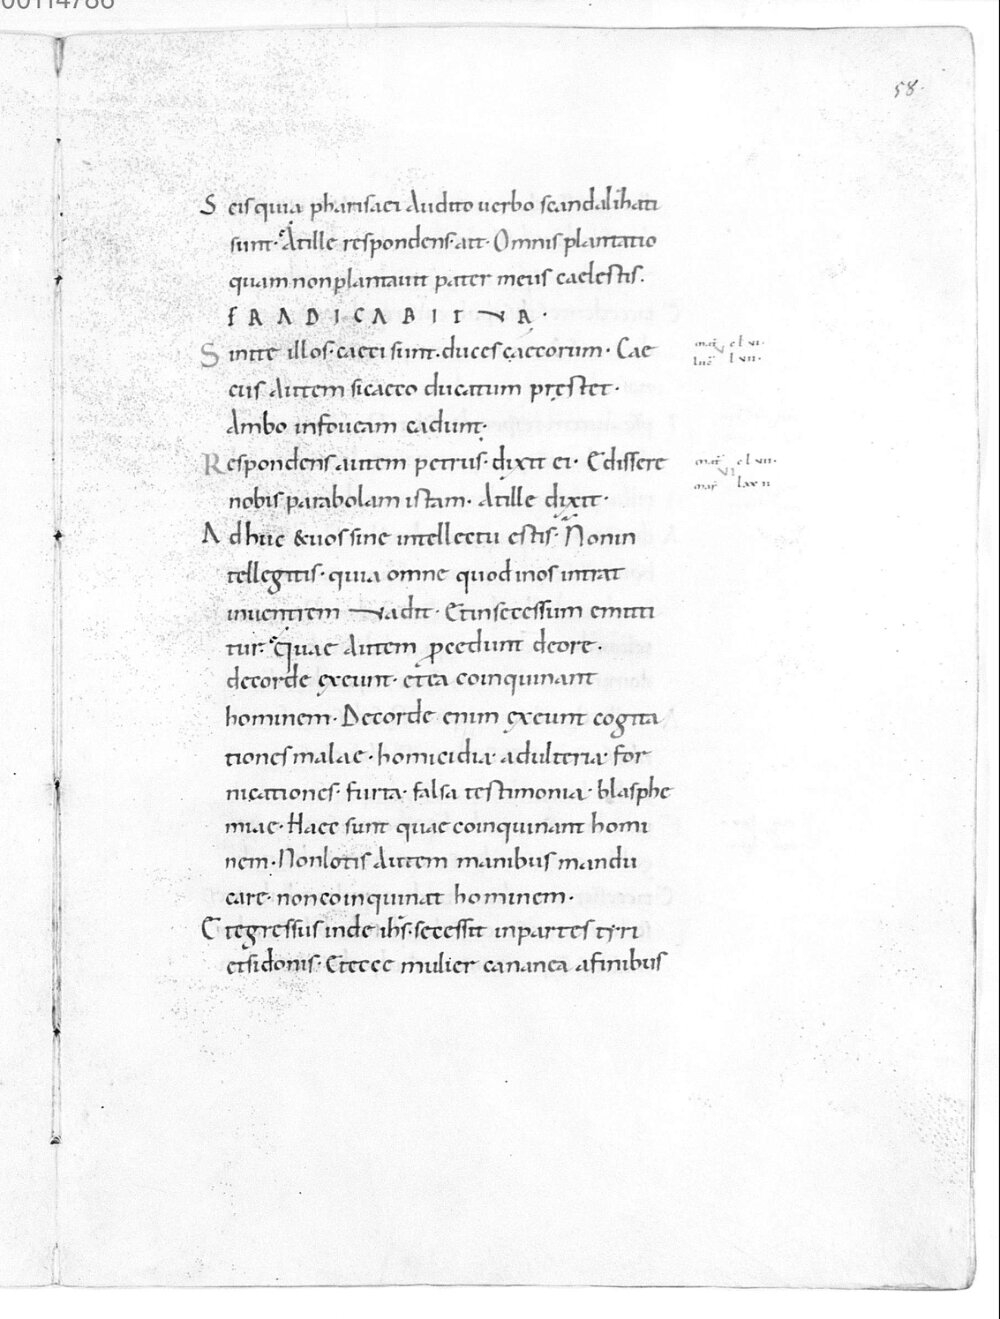 00114786
58
Scis quia pharisaei audito uerbo scandalizati
sunt. At ille respondens ait. Omnis plantatio
quam non plantauit pater meus caelestis.
ERADICABITUR.
Sinite illos. caeci sunt. duces caecorum. Cae
cus autem si caeco ducatum prestet.
Ambo in foueam cadunt.
Respondens autem petrus. dixit ei. Edissere
nobis parabolam istam. At ille dixit.
Adhuc & uos sine intellectu estis. Non in
tellegitis. quia omne quod in os intrat
in uentrem uadit. Et in secessum emitti
tur. Quae autem pcedunt de ore.
de corde exeunt. et ea coinquinant
hominem. De corde enim exeunt cogita
tiones malae. homicidia. adulteria. for
nicationes. furta. falsa testimonia. blasphe
miae. Haec sunt quae coinquinant homi
nem. Non lotis autem manibus mandu
care. non coinquinat hominem.
Et egressus inde ihs. secessit in partes tyri
et sidonis. Et ecce mulier cananea a finibus